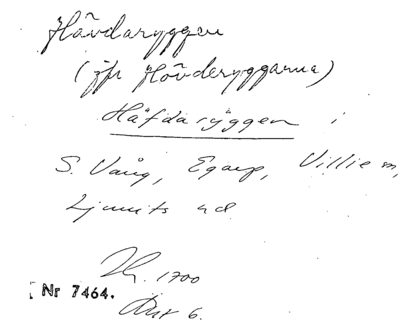 Hövdaryggen
(jfr Hövderyggarna)
Häfdaryggen i
S. Vång, Egarp, Villie sn,
Ljunits hd
1700
Nr 7464.
6.